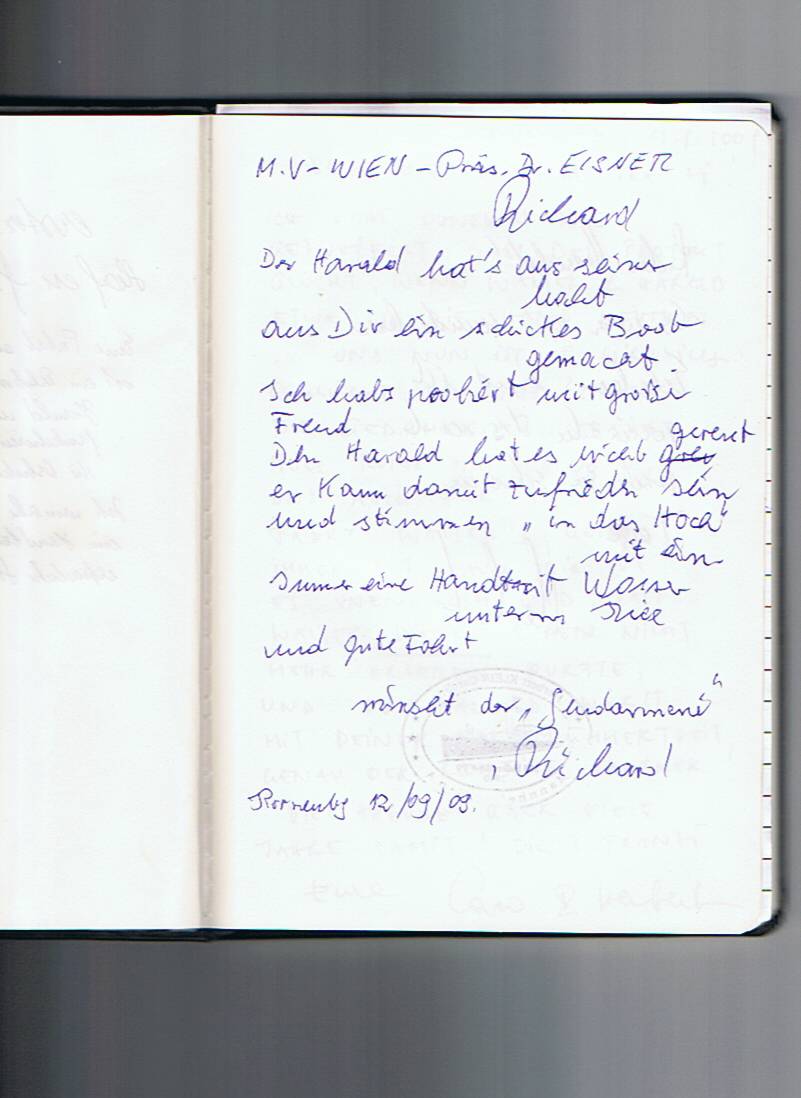 M.V-WIEN - Präs. Dr. EISNER
Richard
Der Harald hat's aus seiner
aus Dir ein schickes Boot
gemacht
Ich habs probiert mit großer
Freud
gereut
Den Harald hat es nicht
er kann damit zufrieden sein
und stimmen „in das Hoch"
mit ein
Immer eine Handbreit Wasser
unterm
und gute Fahrt
wünscht der „Gendarmerie"
Richard
12/09/09.